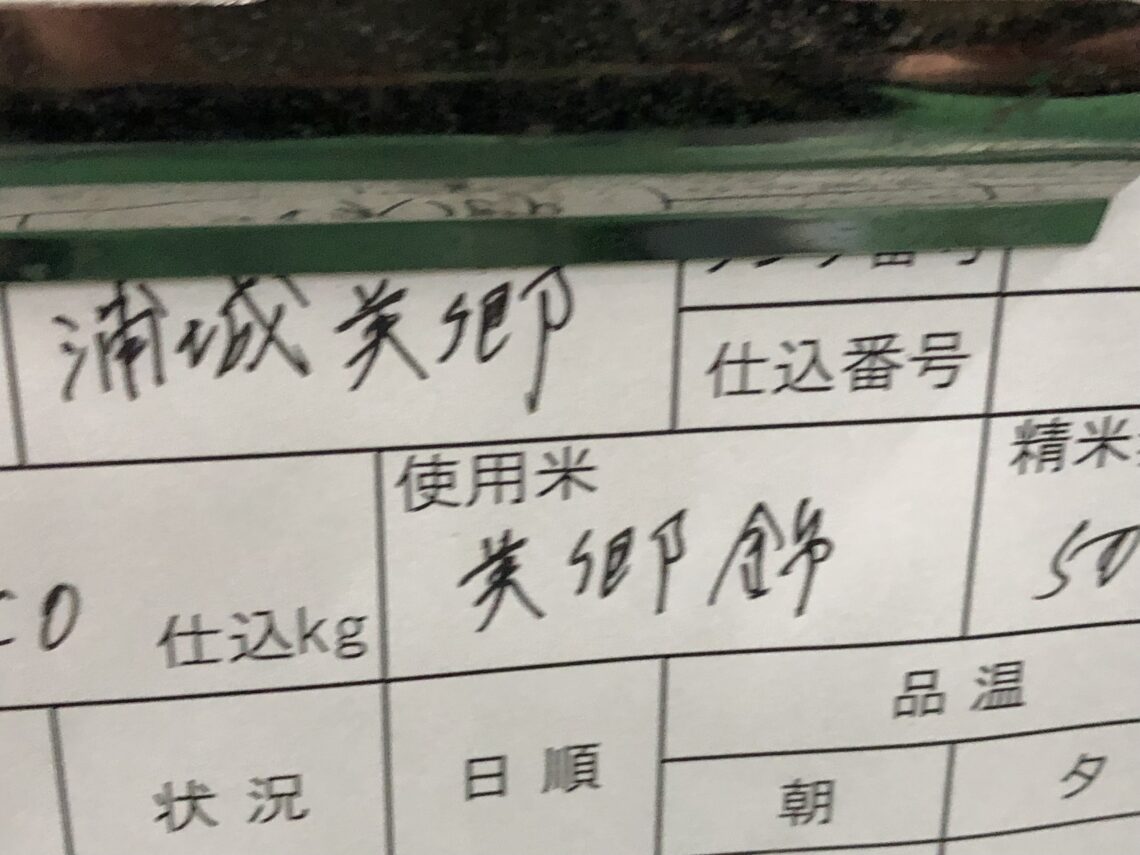 番号
浦城美郷
仕込番号
使用米
精米
美郷錦
50
仕込kg
品温
状況
日順
朝
夕